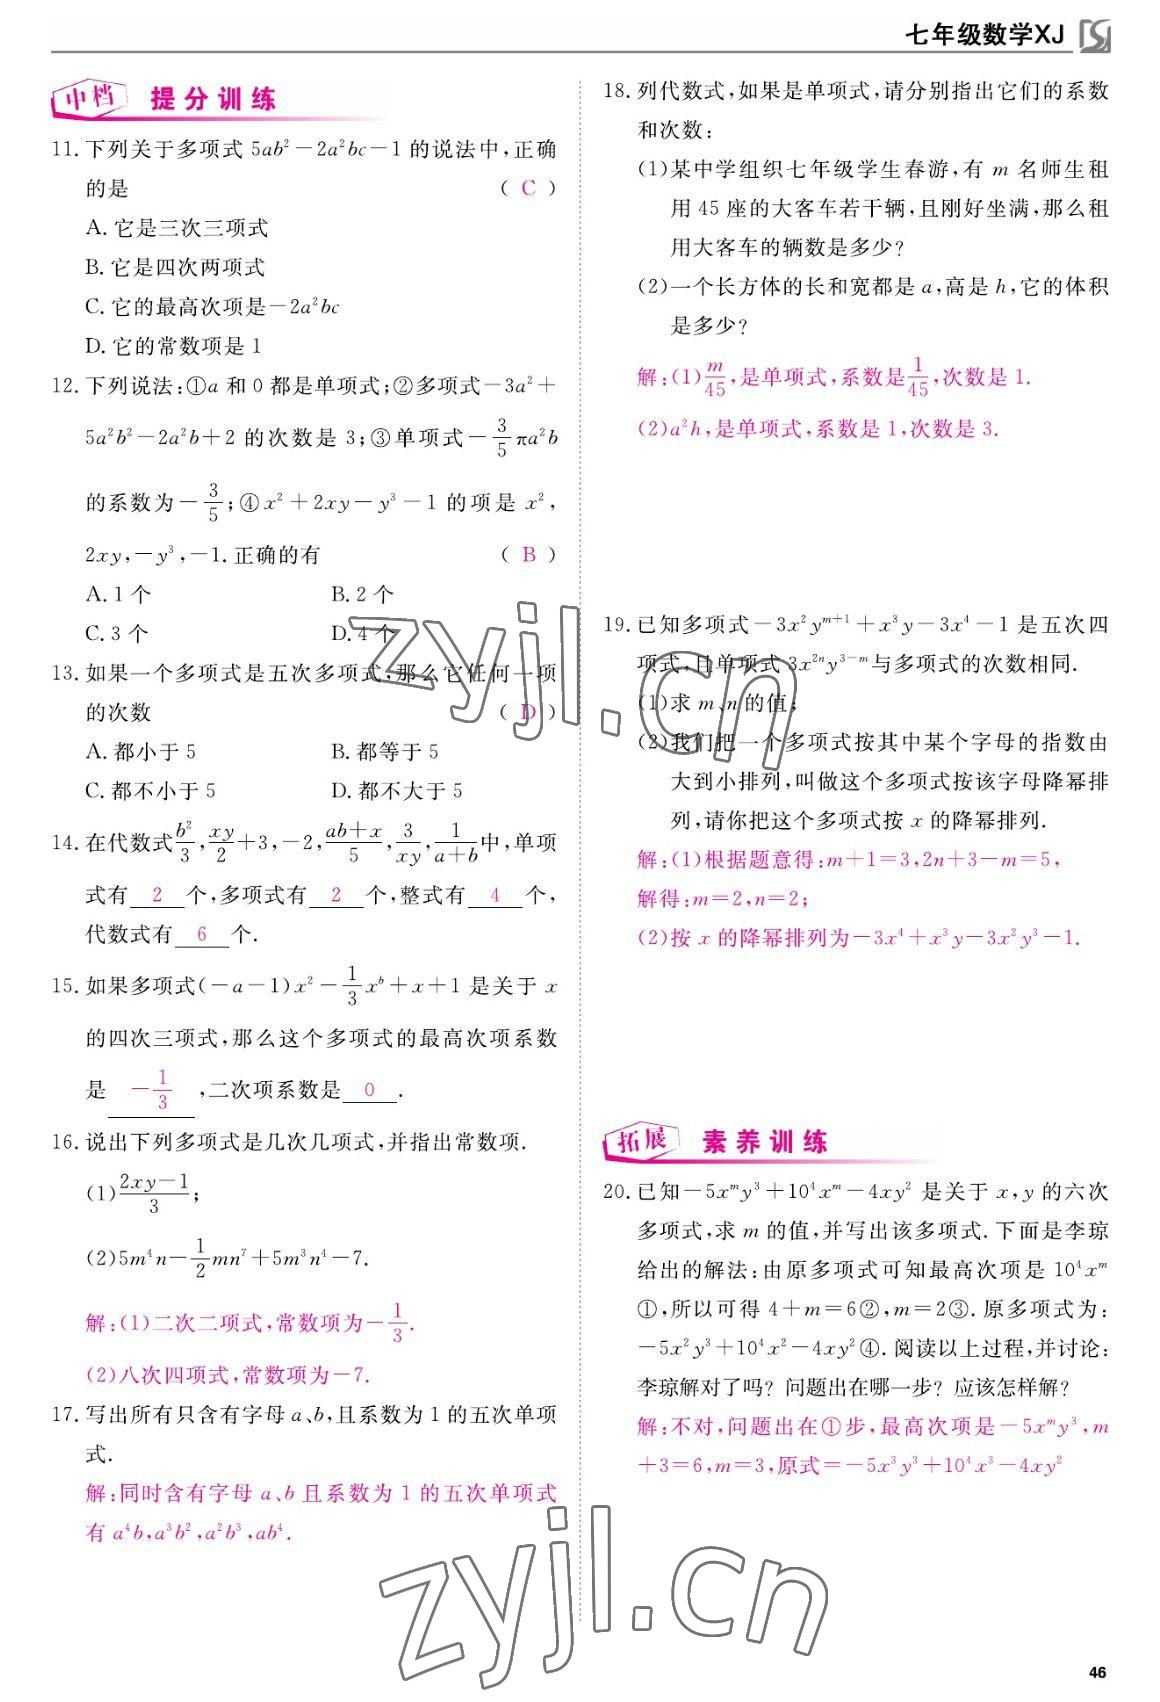 七年级数学XJ
中档 提分训练
11. 下列关于多项式 5ab²－2a²bc－1 的说法中,正确
的是 ( C )
A. 它是三次三项式
B. 它是四次两项式
C. 它的最高次项是－2a²bc
D. 它的常数项是 1
12. 下列说法:①a 和 0 都是单项式;②多项式－3a²＋
5a²b²－2a²b＋2 的次数是 3;③单项式－3/5 πa²b
的系数为－3/5;④x²＋2xy－y³－1 的项是 x²,
2xy,－y³,－1. 正确的有 ( B )
A. 1 个 B. 2 个
C. 3 个 D. 4 个
13. 如果一个多项式是五次多项式,那么它任何一项
的次数 ( D )
A. 都小于 5 B. 都等于 5
C. 都不小于 5 D. 都不大于 5
14. 在代数式 b²/3, xy/2＋3,－2, (ab＋x)/5, 3/xy, 1/(a＋b) 中,单项
式有 2 个,多项式有 2 个,整式有 4 个,
代数式有 6 个.
15. 如果多项式(－a－1)x²－1/3 xᵇ＋x＋1 是关于 x
的四次三项式,那么这个多项式的最高次项系数
是 －1/3 ,二次项系数是 0 .
16. 说出下列多项式是几次几项式,并指出常数项.
(1) (2xy－1)/3;
(2)5m⁴n－1/2 mn⁷＋5m³n⁴－7.
解:(1)二次二项式,常数项为－1/3.
(2)八次四项式,常数项为－7.
17. 写出所有只含有字母 a、b,且系数为 1 的五次单项
式.
解:同时含有字母 a、b 且系数为 1 的五次单项式
有 a⁴b,a³b²,a²b³,ab⁴.
18. 列代数式,如果是单项式,请分别指出它们的系数
和次数:
(1)某中学组织七年级学生春游,有 m 名师生租
用 45 座的大客车若干辆,且刚好坐满,那么租
用大客车的辆数是多少?
(2)一个长方体的长和宽都是 a,高是 h,它的体积
是多少?
解:(1) m/45,是单项式,系数是 1/45,次数是 1.
(2)a²h,是单项式,系数是 1,次数是 3.
19. 已知多项式－3x²yᵐ⁺¹＋x³y－3x⁴－1 是五次四
项式,且单项式 3x²ⁿy³⁻ᵐ与多项式的次数相同.
(1)求 m、n 的值;
(2)我们把一个多项式按其中某个字母的指数由
大到小排列,叫做这个多项式按该字母降幂排
列,请你把这个多项式按 x 的降幂排列.
解:(1)根据题意得:m＋1＝3,2n＋3－m＝5,
解得:m＝2,n＝2;
(2)按 x 的降幂排列为－3x⁴＋x³y－3x²y³－1.
拓展 素养训练
20. 已知－5xᵐy³＋10⁴xᵐ－4xy² 是关于 x,y 的六次
多项式,求 m 的值,并写出该多项式. 下面是李琼
给出的解法:由原多项式可知最高次项是 10⁴xᵐ
①,所以可得 4＋m＝6②,m＝2③. 原多项式为:
－5x²y³＋10⁴x²－4xy²④. 阅读以上过程,并讨论:
李琼解对了吗? 问题出在哪一步? 应该怎样解?
解:不对,问题出在①步,最高次项是－5xᵐy³,m
＋3＝6,m＝3,原式＝－5x³y³＋10⁴x³－4xy²
zyjl.cn
zyjl.cn
46